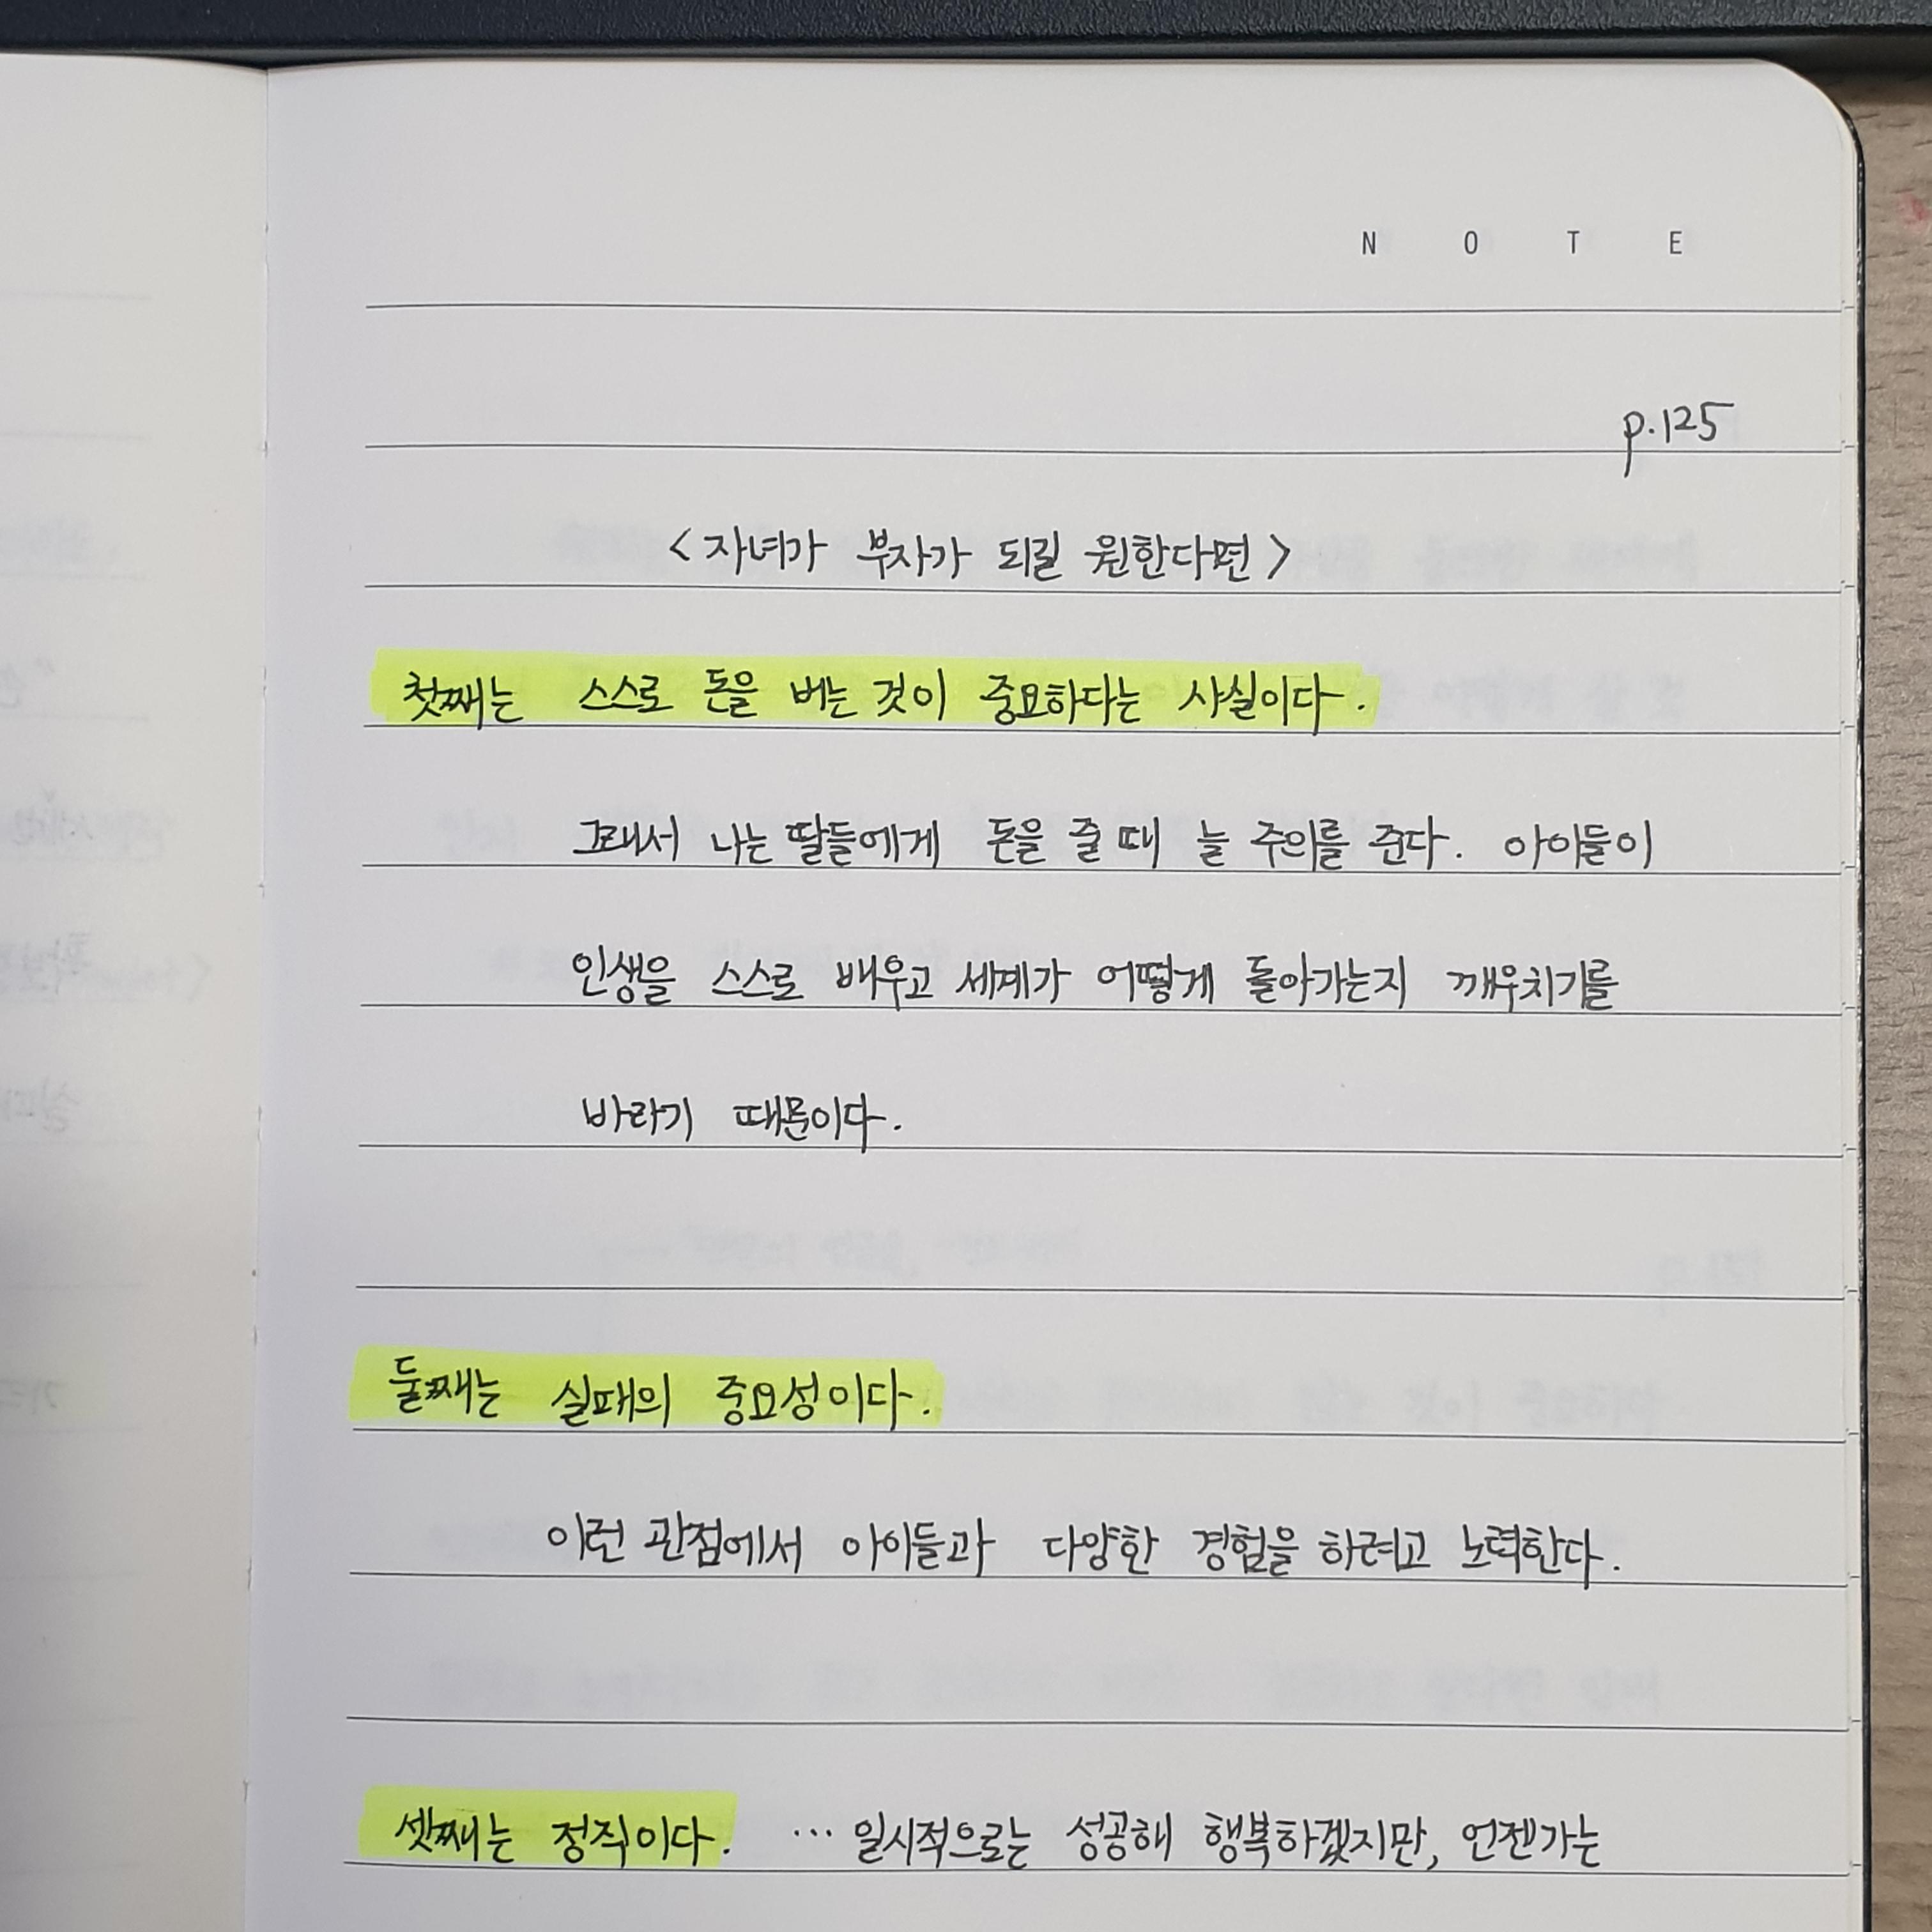 N O T E
p.125
<자녀가 부자가 되길 원한다면>
첫째는 스스로 돈을 버는 것이 중요하다는 사실이다.
그래서 나는 딸들에게 돈을 줄 때 늘 주의를 준다. 아이들이
인생을 스스로 배우고 세계가 어떻게 돌아가는지 깨우치기를
바라기 때문이다.
둘째는 실패의 중요성이다.
이런 관점에서 아이들과 다양한 경험을 하려고 노력한다.
셋째는 정직이다. ... 일시적으로는 성공해 행복하겠지만, 언젠가는